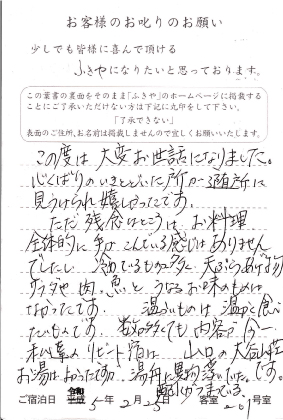 お客様のお叱りのお願い
少しでも皆様に喜んで頂ける
ふきやになりたいと思っております。
この葉書の裏面をそのまま「ふきや」のホームページに掲載する
ことにご了承いただけない方は下記に丸印をして下さい。
「了承できない」
表面のご住所、お名前は掲載しませんので宜しくお願いいたします。
この度は大変お世話になりました。
心くばりのいきとどいた所が随所に
見うけられ嬉しかったです。
ただ残念なところは、お料理
全体的に手がこんでいる感じはありません
でしたし 冷めているものが多く 天ぷらあげ物
サラダ 肉、魚と うなるお味のものは
なかったです。 温ものは温かく食べ
たいもんです。 数が多くても 内容が今一
私達のリピート宿は 山口の大谷山荘
お湯はよかったですが、湯舟に異物
です。
ご宿泊日 令和 5年 2月 日 客室 号室